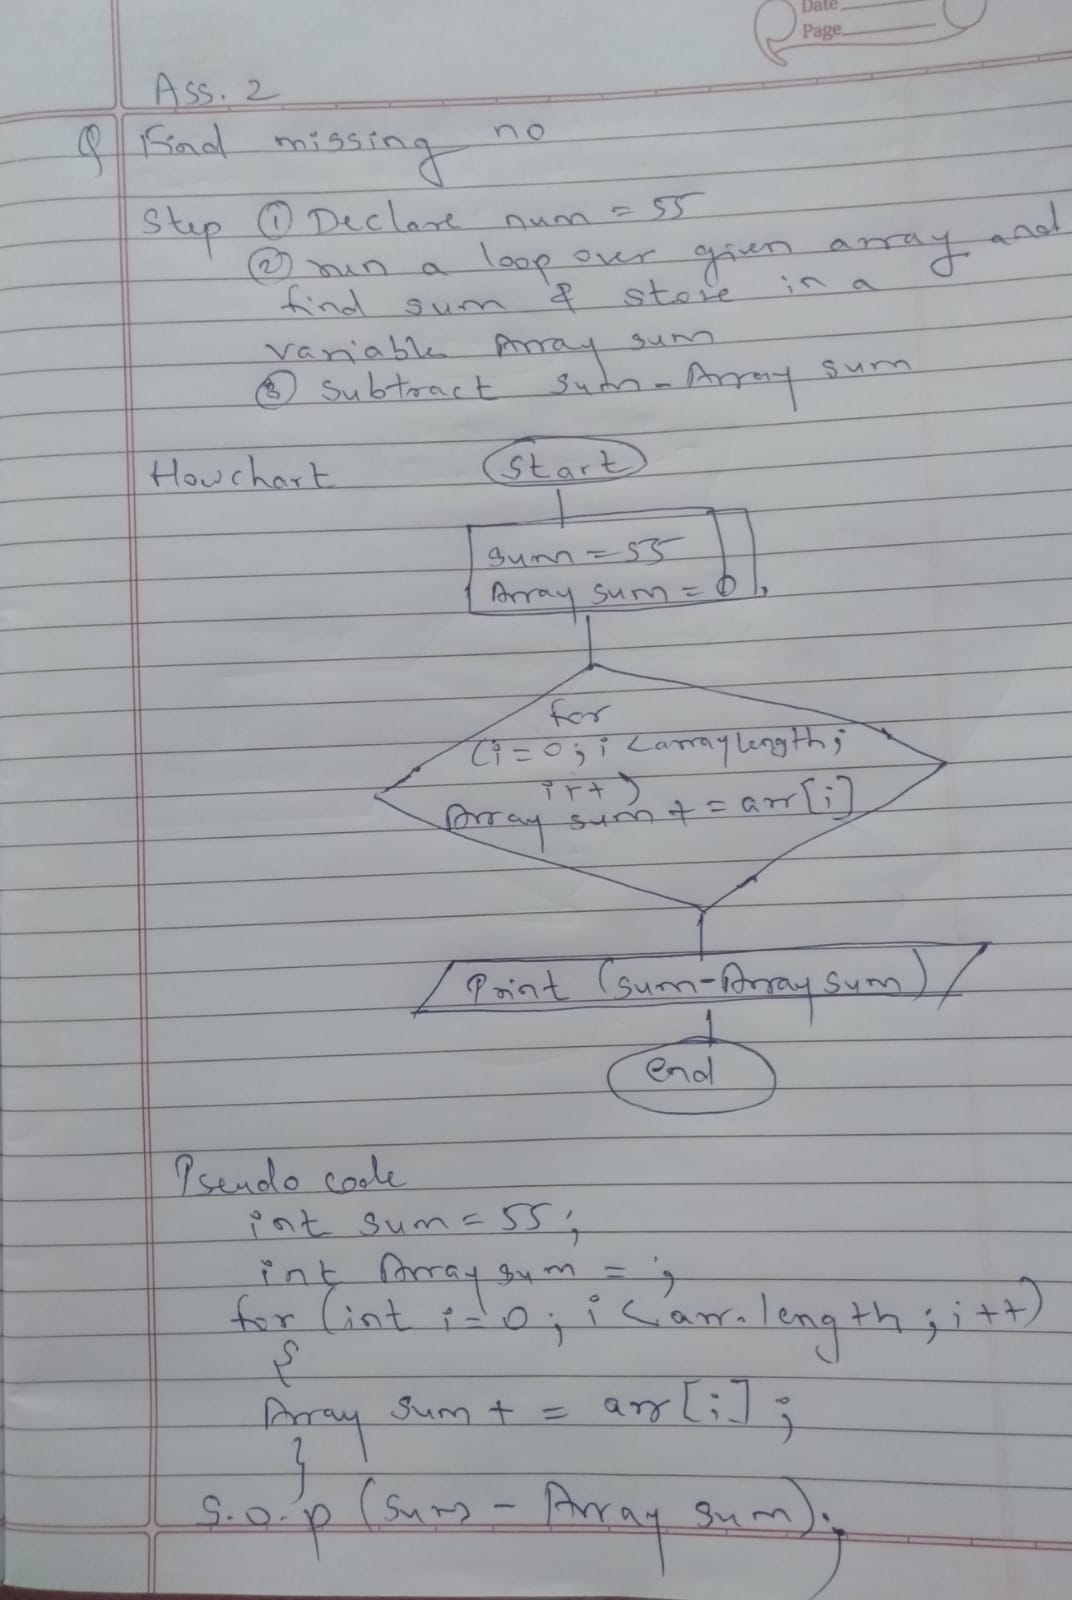 Date
Page
Ass. 2
Q Find missing no
Step ① Declare num = 55
② run a loop over given array and
find sum & store in a
variable Array sum
③ Subtract sum - Array sum
Flowchart
Start
Sum = 55
Array sum = 0
for
(i = 0 ; i < arraylength ;
i++)
Array sum + = arr[i]
Print (sum-Array sum)
end
Pseudo code
int sum = 55 ;
int Array sum = ;
for (int i = 0 ; i < arr.length ; i++)
{
Array sum + = arr[i] ;
}
S.o.p (Sum - Array sum);